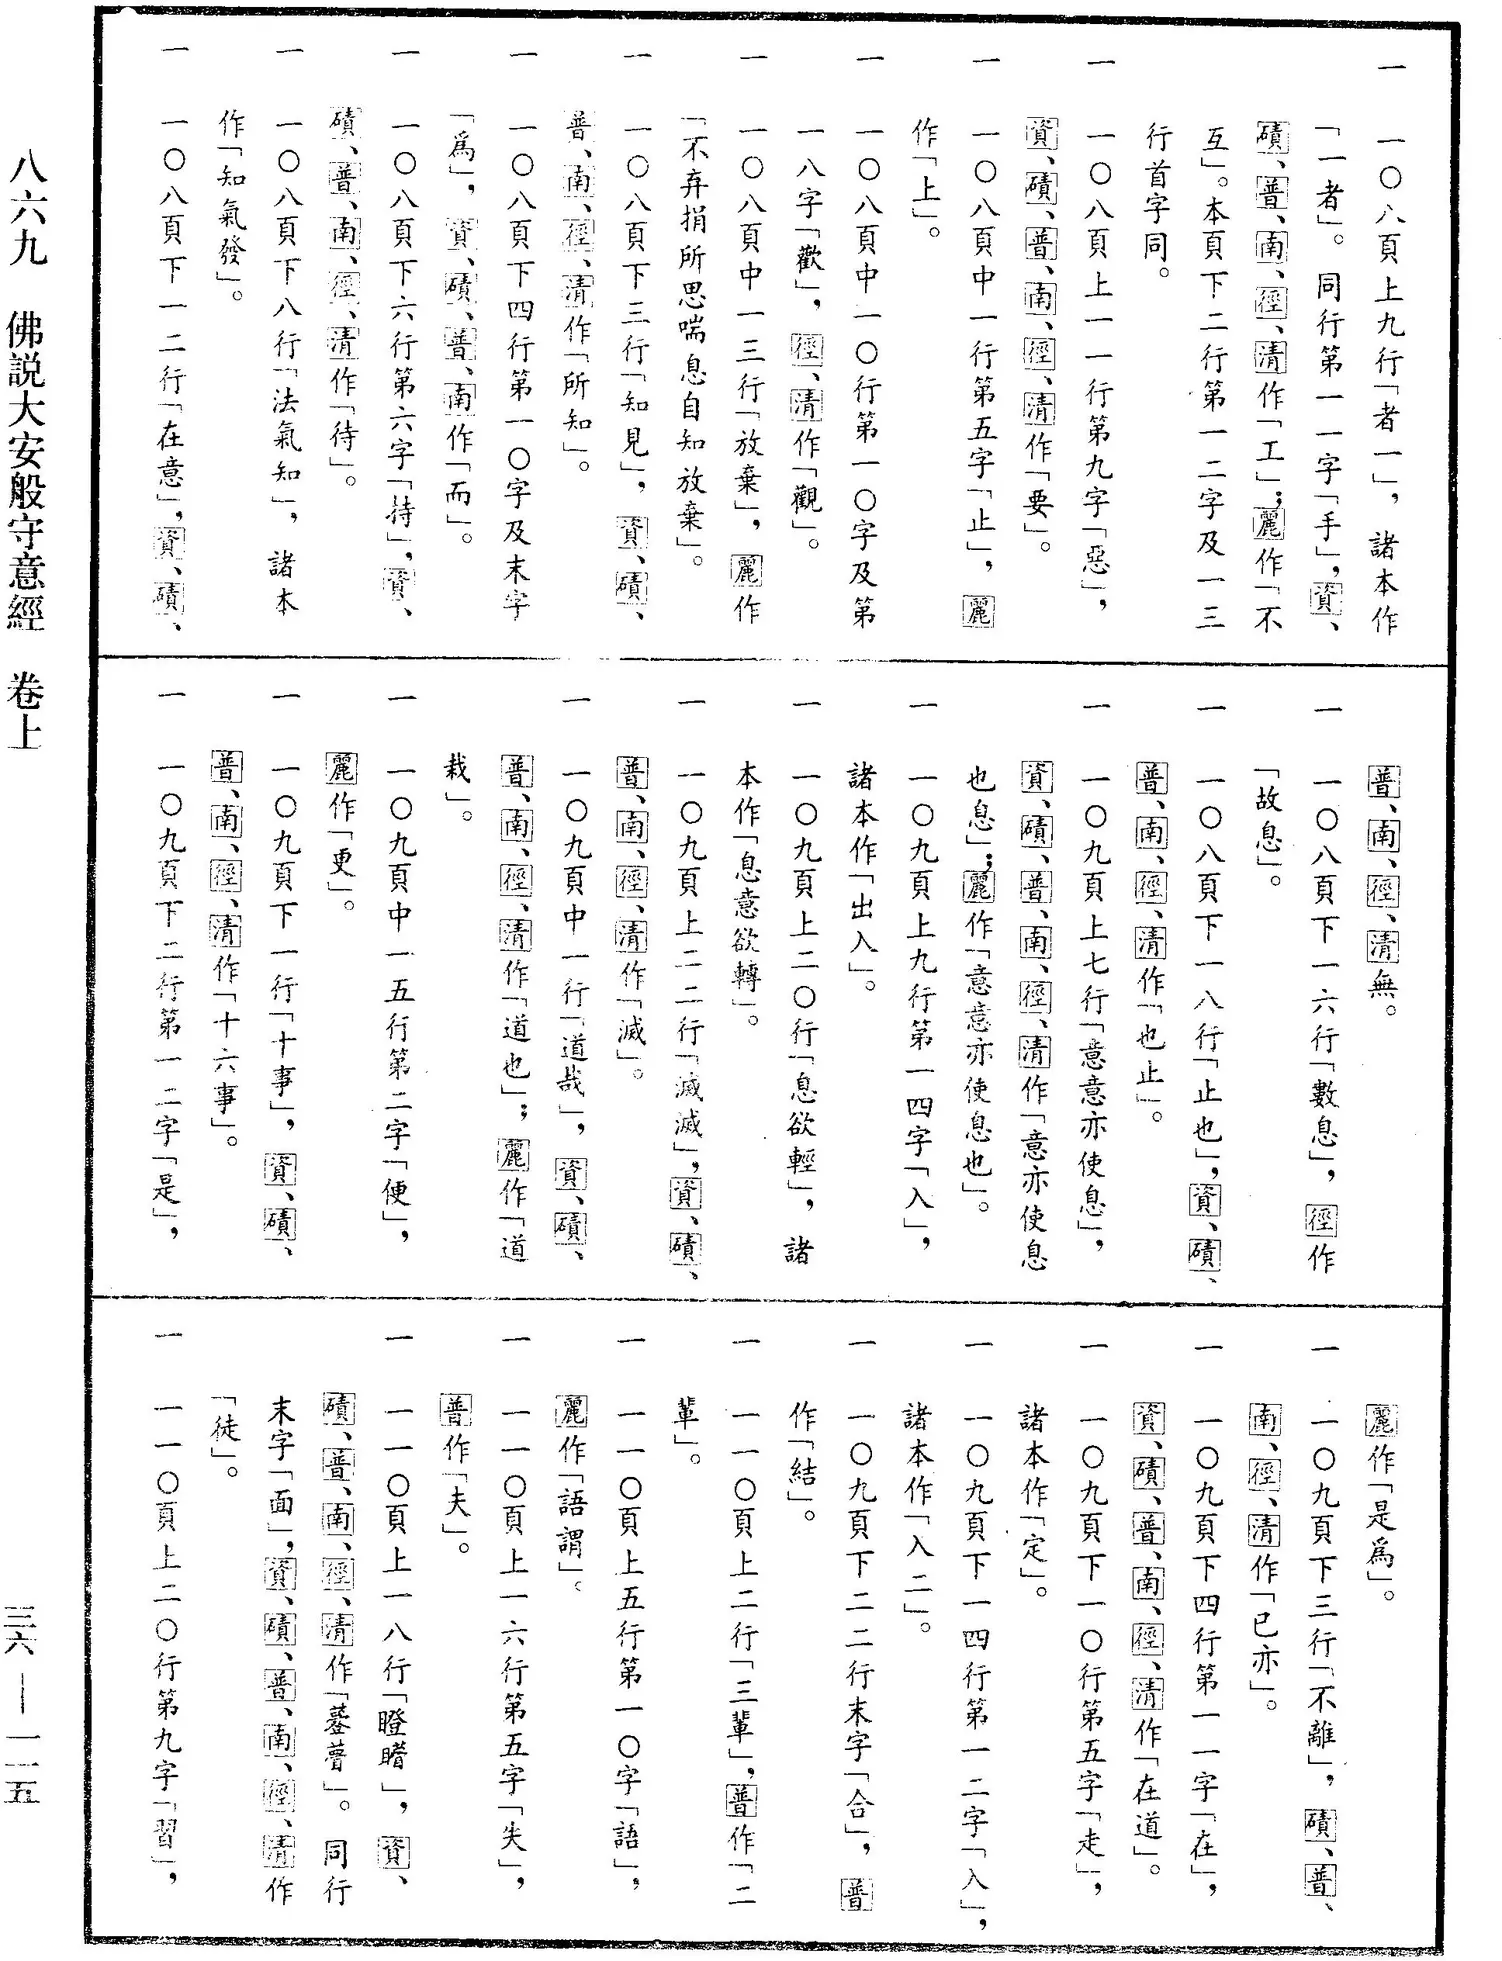 一 一〇八頁上九行「者一」，諸本作
「一者」。同行第一一字「手」，資、
磧、普、南、徑、清作「工」；麗作「不
互」。本頁下二行第一二字及一三
行首字同。
一 一〇八頁上一一行第九字「惡」，
資、磧、普、南、徑、清作「要」。
一 一〇八頁中一行第五字「止」，麗
作「上」。
一 一〇八頁中一〇行第一〇字及第
一八字「歡」，徑、清作「觀」。
一 一〇八頁中一三行「放棄」，麗作
「不弃捐所思喘息自知放棄」。
一 一〇八頁下三行「知見」，資、磧、
普、南、徑、清作「所知」。
一 一〇八頁下四行第一〇字及末字
「爲」，資、磧、普、南作「而」。
一 一〇八頁下六行第六字「持」，資、
磧、普、南、徑、清作「待」。
一 一〇八頁下八行「法氣知」，諸本
作「知氣發」。
一 一〇八頁下一二行「在意」，資、磧、
普、南、徑、清無。
一 一〇八頁下一六行「數息」，徑作
「故息」。
一 一〇八頁下一八行「止也」，資、磧、
普、南、徑、清作「也止」。
一 一〇九頁上七行「意意亦使息」，
資、磧、普、南、徑、清作「意亦使息
也息」；麗作「意意亦使息也」。
一 一〇九頁上九行第一四字「入」，
諸本作「出入」。
一 一〇九頁上二〇行「息欲輕」，諸
本作「息意欲轉」。
一 一〇九頁上二二行「滅滅」，資、磧、
普、南、徑、清作「滅」。
一 一〇九頁中一行「道哉」，資、磧、
普、南、徑、清作「道也」；麗作「道
栽」。
一 一〇九頁中一五行第二字「便」，
麗作「更」。
一 一〇九頁下一行「十事」，資、磧、
普、南、徑、清作「十六事」。
一 一〇九頁下二行第一二字「是」，
麗作「是爲」。
一 一〇九頁下三行「不離」，磧、普、
南、徑、清作「已亦」。
一 一〇九頁下四行第一一字「在」，
資、磧、普、南、徑、清作「在道」。
一 一〇九頁下一〇行第五字「走」，
諸本作「定」。
一 一〇九頁下一四行第一二字「入」，
諸本作「入二」。
一 一〇九頁下二二行末字「合」，普
作「結」。
一 一一〇頁上二行「三輩」，普作「二
輩」。
一 一一〇頁上五行第一〇字「語」，
麗作「語謂」。
一 一一〇頁上一六行第五字「失」，
普作「夫」。
一 一一〇頁上一八行「瞪瞢」，資、
磧、普、南、徑、清作「䔲瞢」。同行
末字「面」，資、磧、普、南、徑、清作
「徒」。
一 一一〇頁上二〇行第九字「習」，
八六九 佛説大安般守意經 卷上
三六——一一五